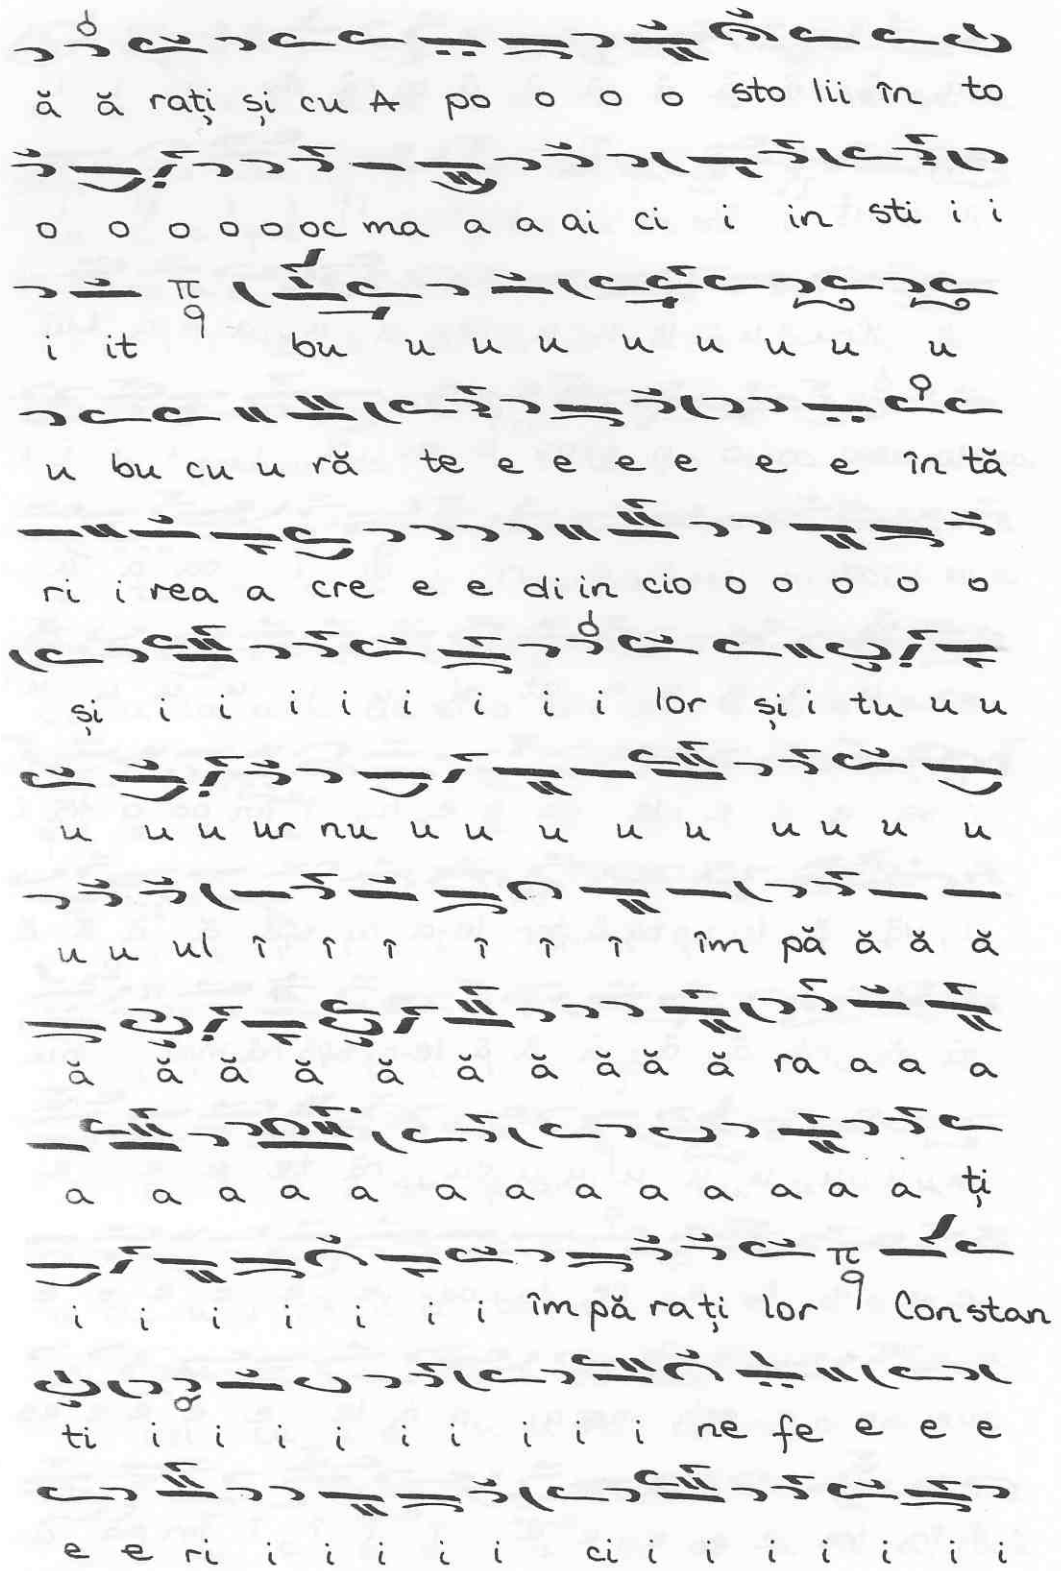 ă ă rați și cu A po o o o sto lii în to
o o o o o oc ma a a ai ci i in sti i i
i it π bu u u u u u u u u
u bu cu u ră te e e e e e e în tă
ri i rea a cre e e di in cio o o o o o
și i i i i i i i i lor și i tu u u
u u u ur nu u u u u u u u u u
u u ul î î î î î î îm pă ă ă ă
ă ă ă ă ă ă ă ă ă ă ra a a a
a a a a a a a a a a a a a ți
i i i i i i i îm pă rați lor π Constan
ti i i i i i i i i i ne fe e e e
e e ri i i i i i ci i i i i i i